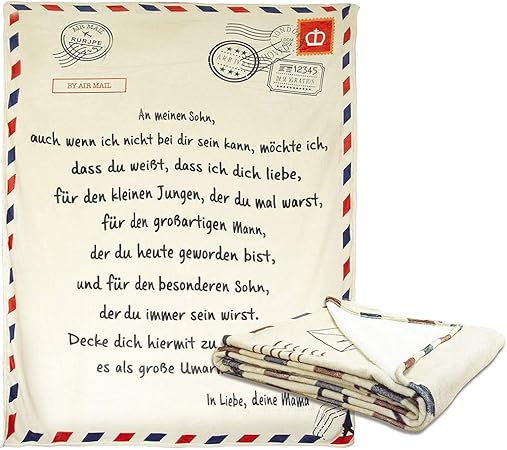 AIR MAIL
RURJPE
LONDON
12345
IMMIGRATION
BY AIR MAIL
An meinen Sohn,
auch wenn ich nicht bei dir sein kann, möchte ich,
dass du weißt, dass ich dich liebe,
für den kleinen Jungen, der du mal warst,
für den großartigen Mann,
der du heute geworden bist,
und für den besonderen Sohn,
der du immer sein wirst.
Decke dich hiermit zu
es als große Umar
In Liebe, deine Mama